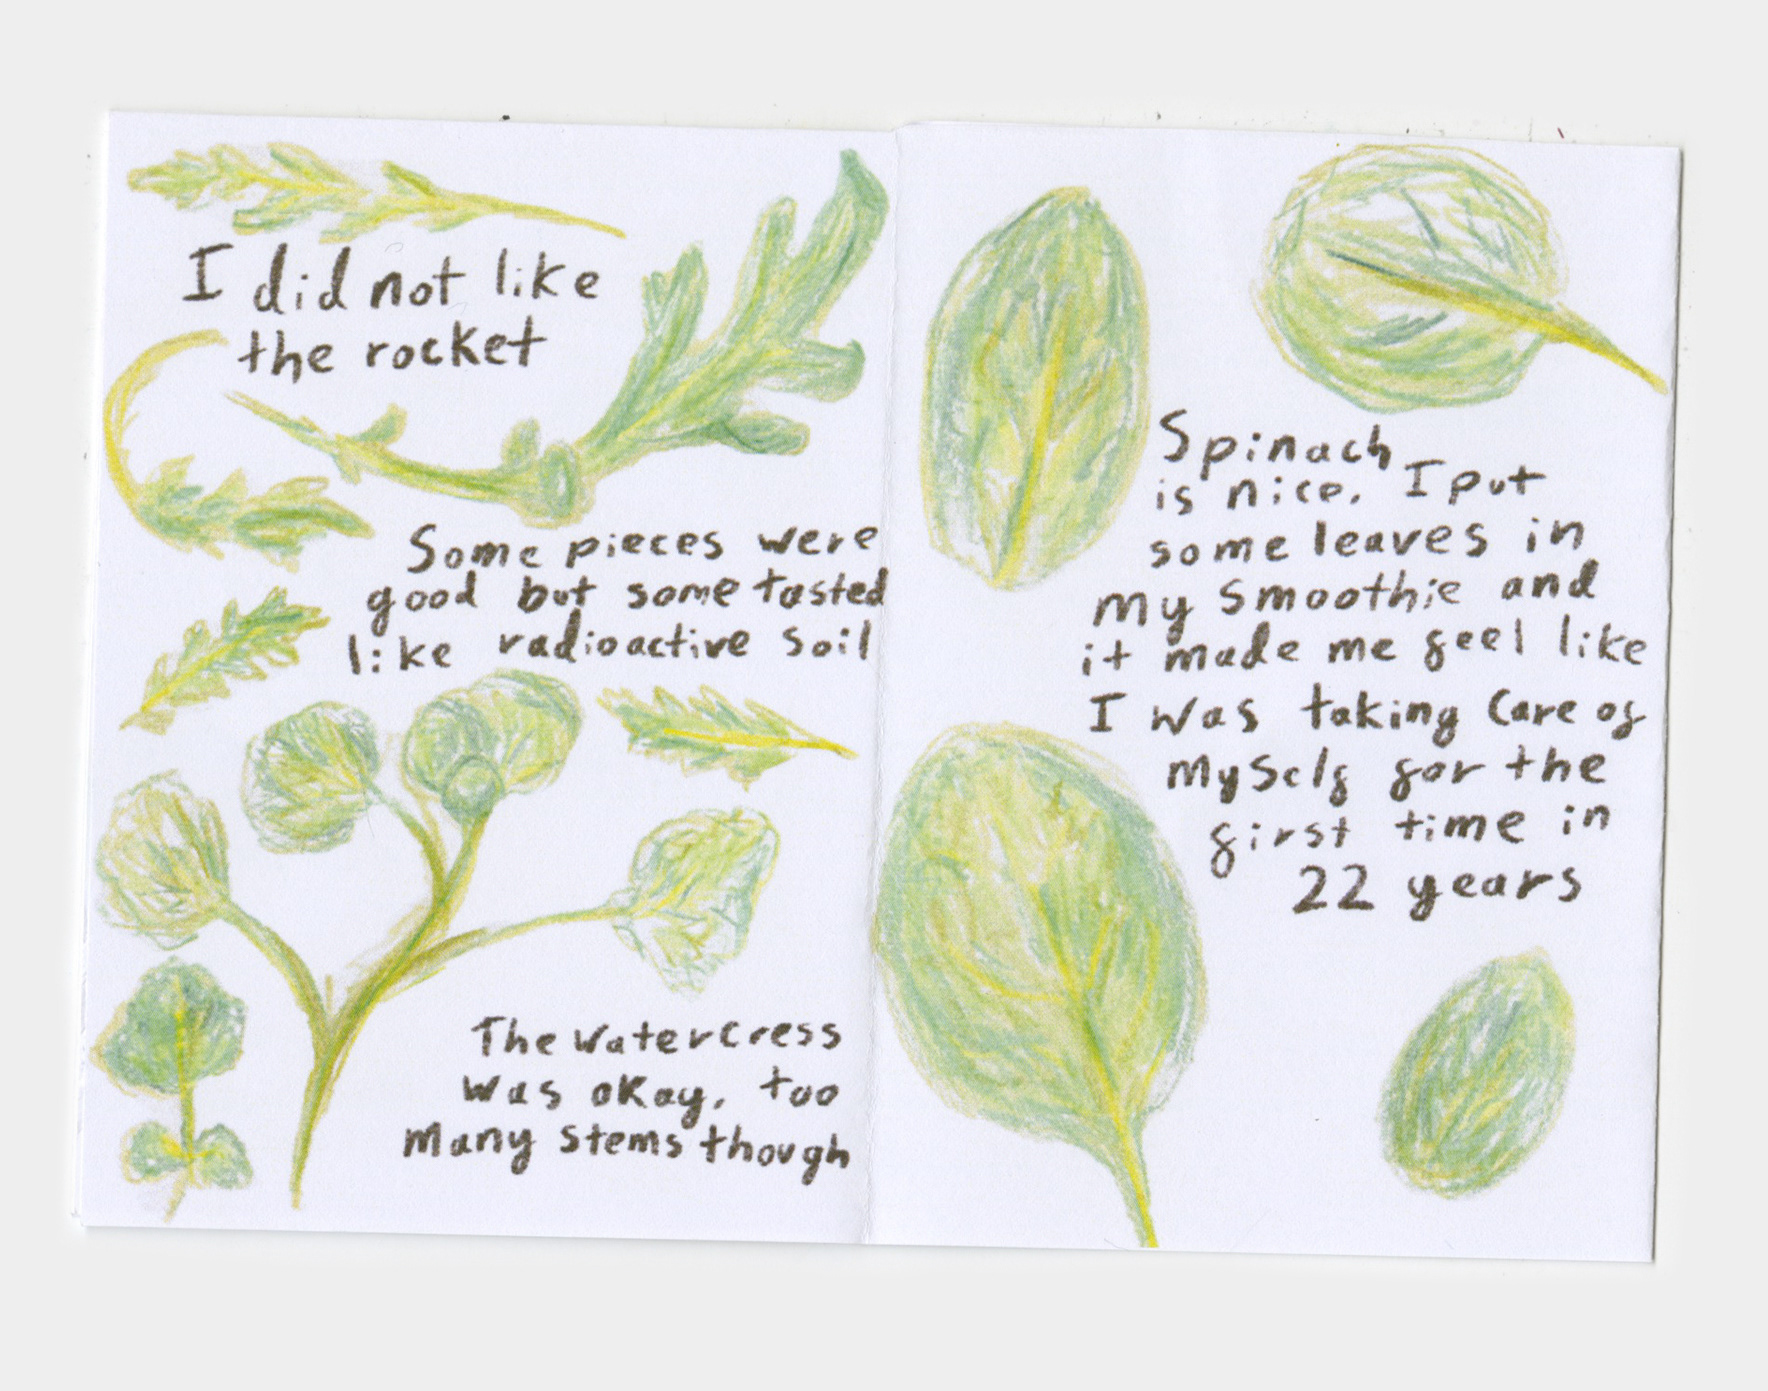 I did not like
the rocket
Some pieces were
good but some tasted
like radioactive soil
The watercress
was okay, too
many stems though
Spinach
is nice. I put
some leaves in
my smoothie and
it made me feel like
I was taking care of
myself for the
first time in
22 years